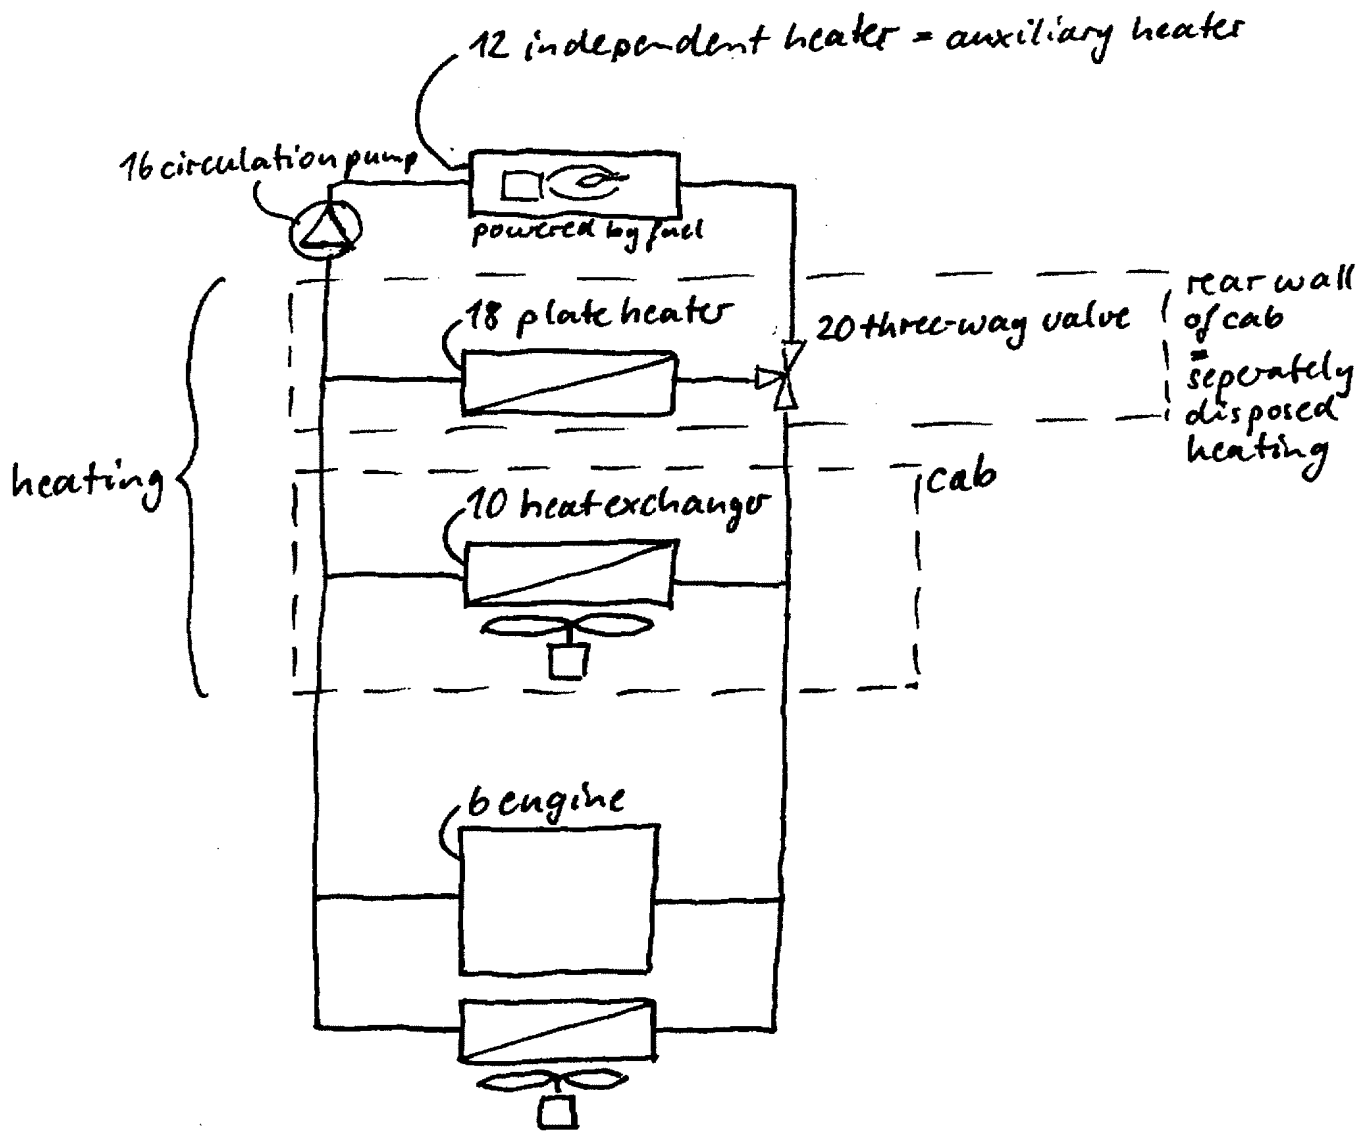 12 independent heater = auxiliary heater
16 circulation pump
powered by fuel
18 plate heater
20 three-wag valve
rear wall
of cab
=
seperately
disposed
heating
heating
cab
10 heat exchanger
6 engine